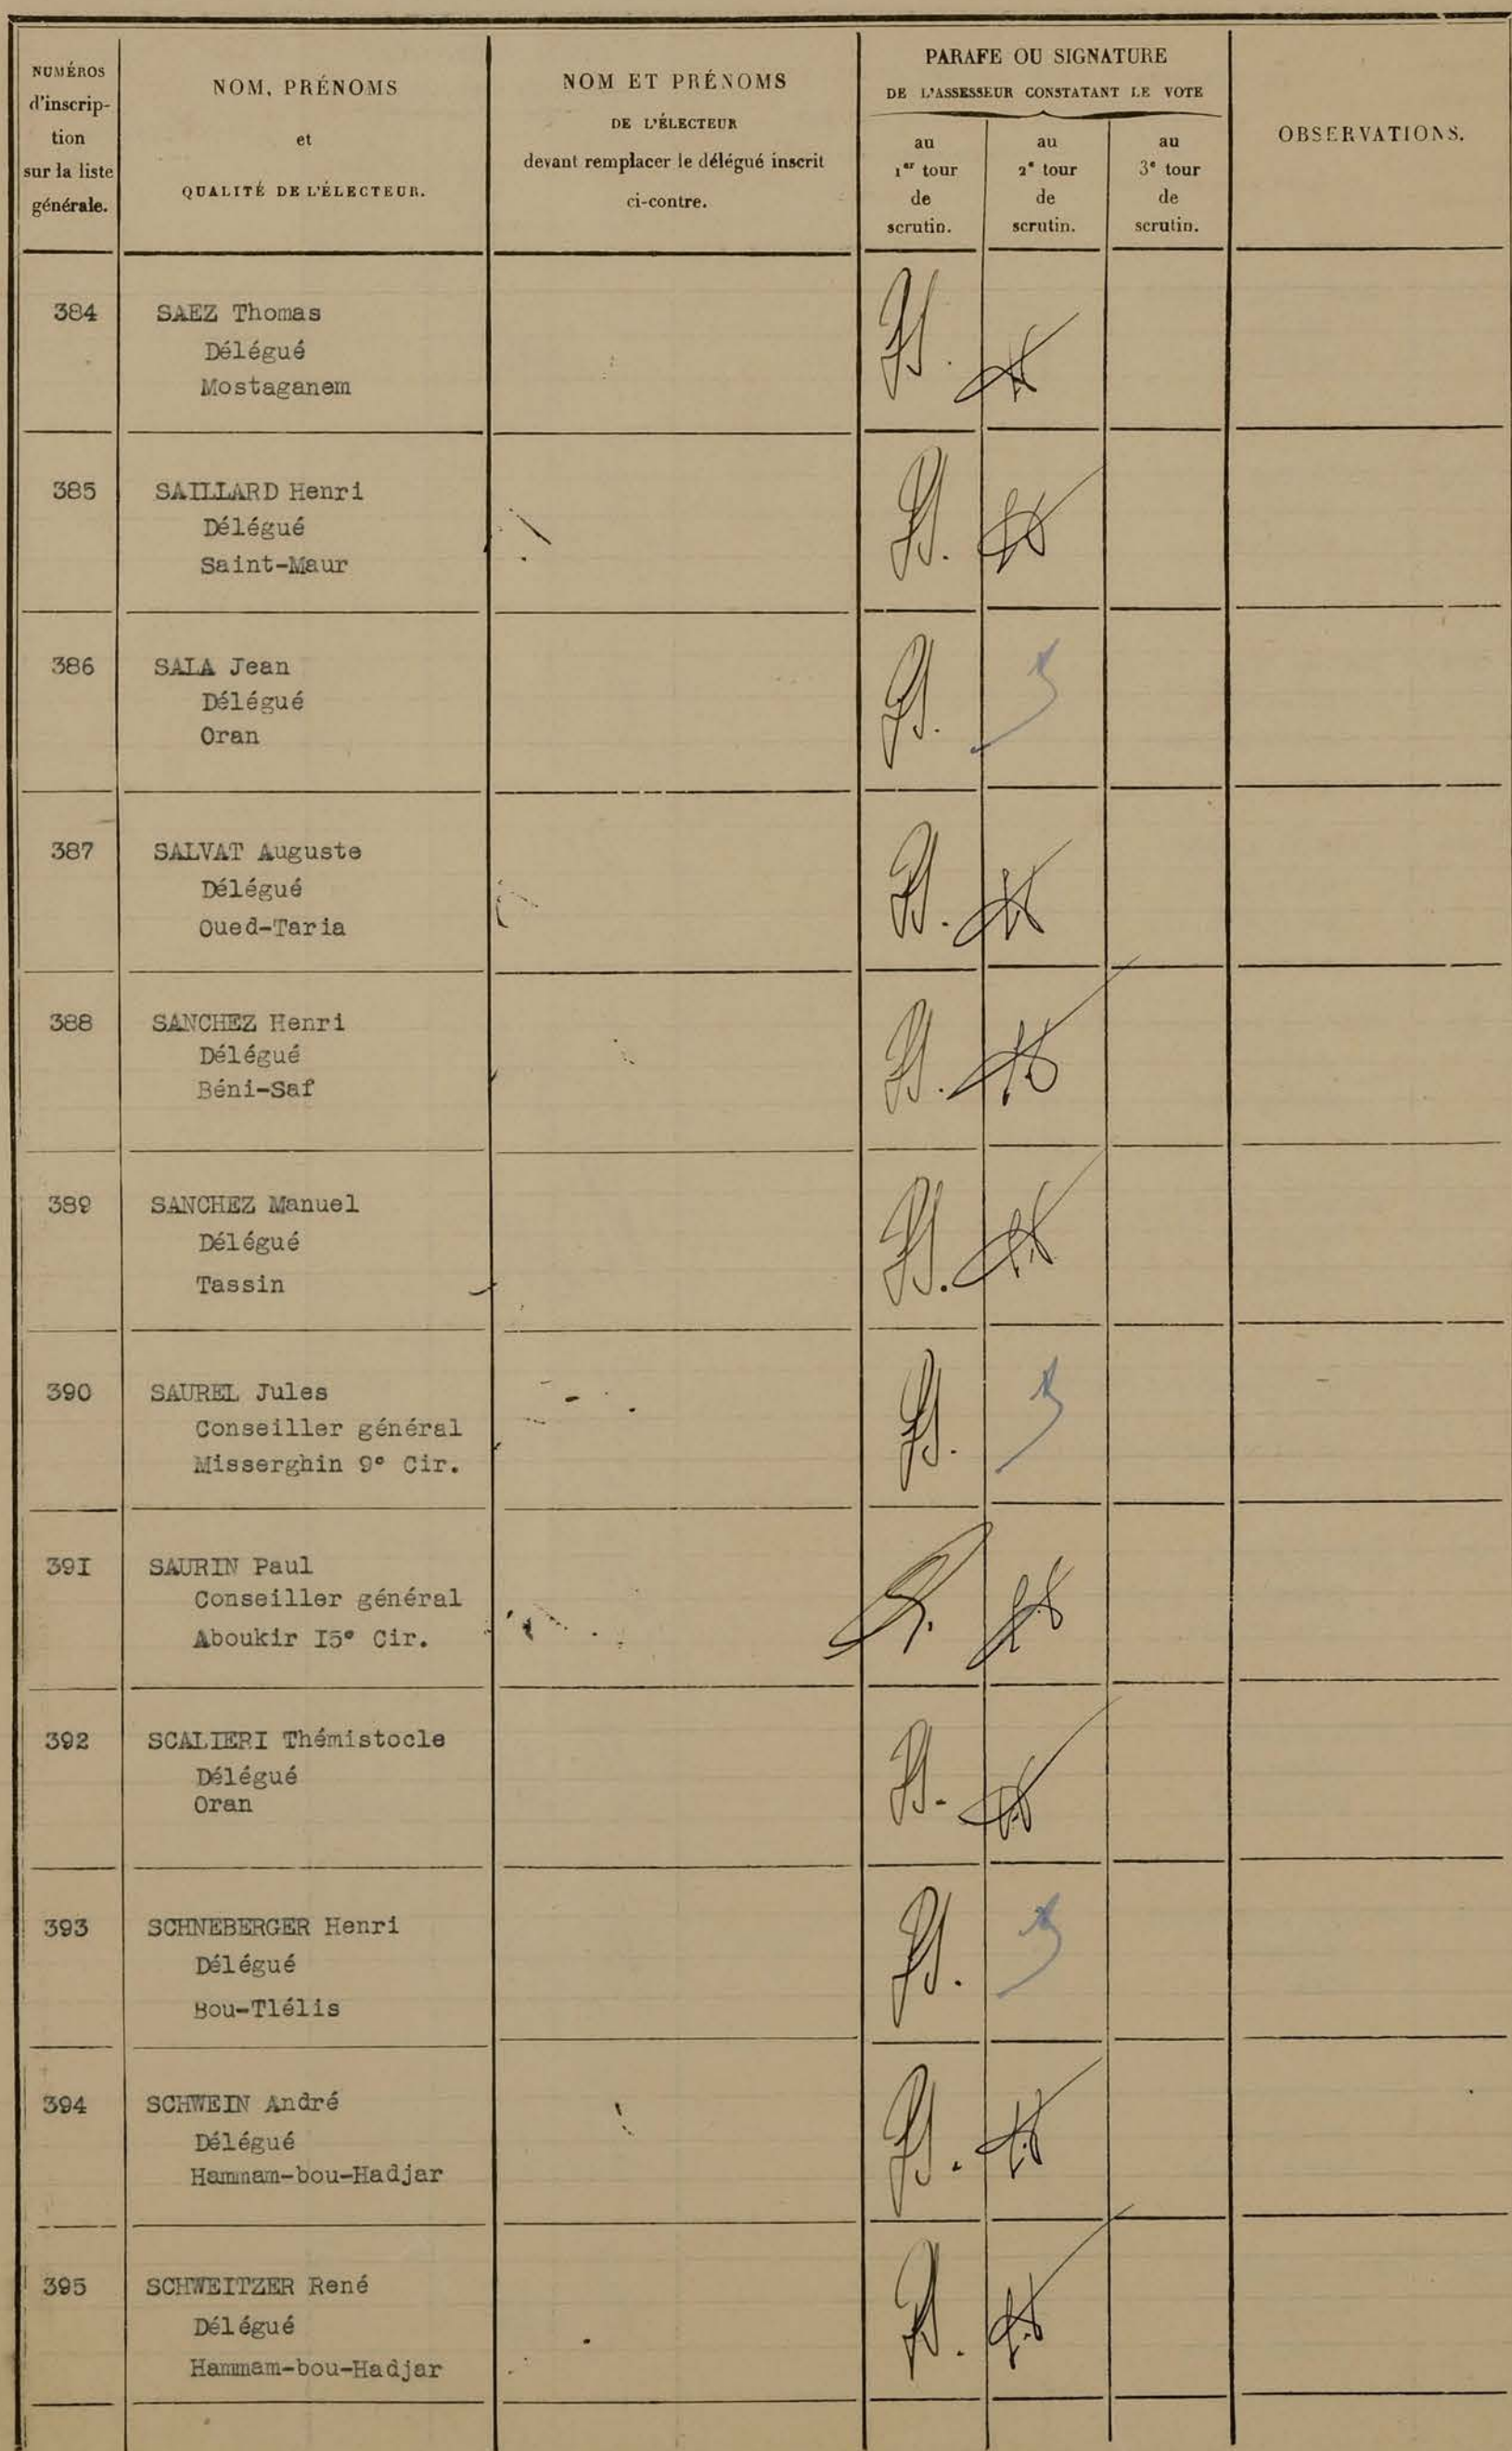 NUMÉROS
d'inscrip-
tion
sur la liste
générale.
NOM, PRÉNOMS
et
QUALITÉ DE L'ÉLECTEUR.
NOM ET PRÉNOMS
DE L'ÉLECTEUR
devant remplacer le délégué inscrit
ci-contre.
PARAFE OU SIGNATURE
DE L'ASSESSEUR CONSTATANT LE VOTE
au
1er tour
de
scrutin.
au
2e tour
de
scrutin.
au
3e tour
de
scrutin.
OBSERVATIONS.
384
SAEZ Thomas
Délégué
Mostaganem
385
SAILLARD Henri
Délégué
Saint-Maur
386
SALA Jean
Délégué
Oran
387
SALVAT Auguste
Délégué
Oued-Taria
388
SANCHEZ Henri
Délégué
Béni-Saf
389
SANCHEZ Manuel
Délégué
Tassin
390
SAUREL Jules
Conseiller général
Misserghin 9° Cir.
39I
SAURIN Paul
Conseiller général
Aboukir I5° Cir.
392
SCALIERI Thémistocle
Délégué
Oran
393
SCHNEBERGER Henri
Délégué
Bou-Tlélis
394
SCHWEIN André
Délégué
Hammam-bou-Hadjar
395
SCHWEITZER René
Délégué
Hammam-bou-Hadjar